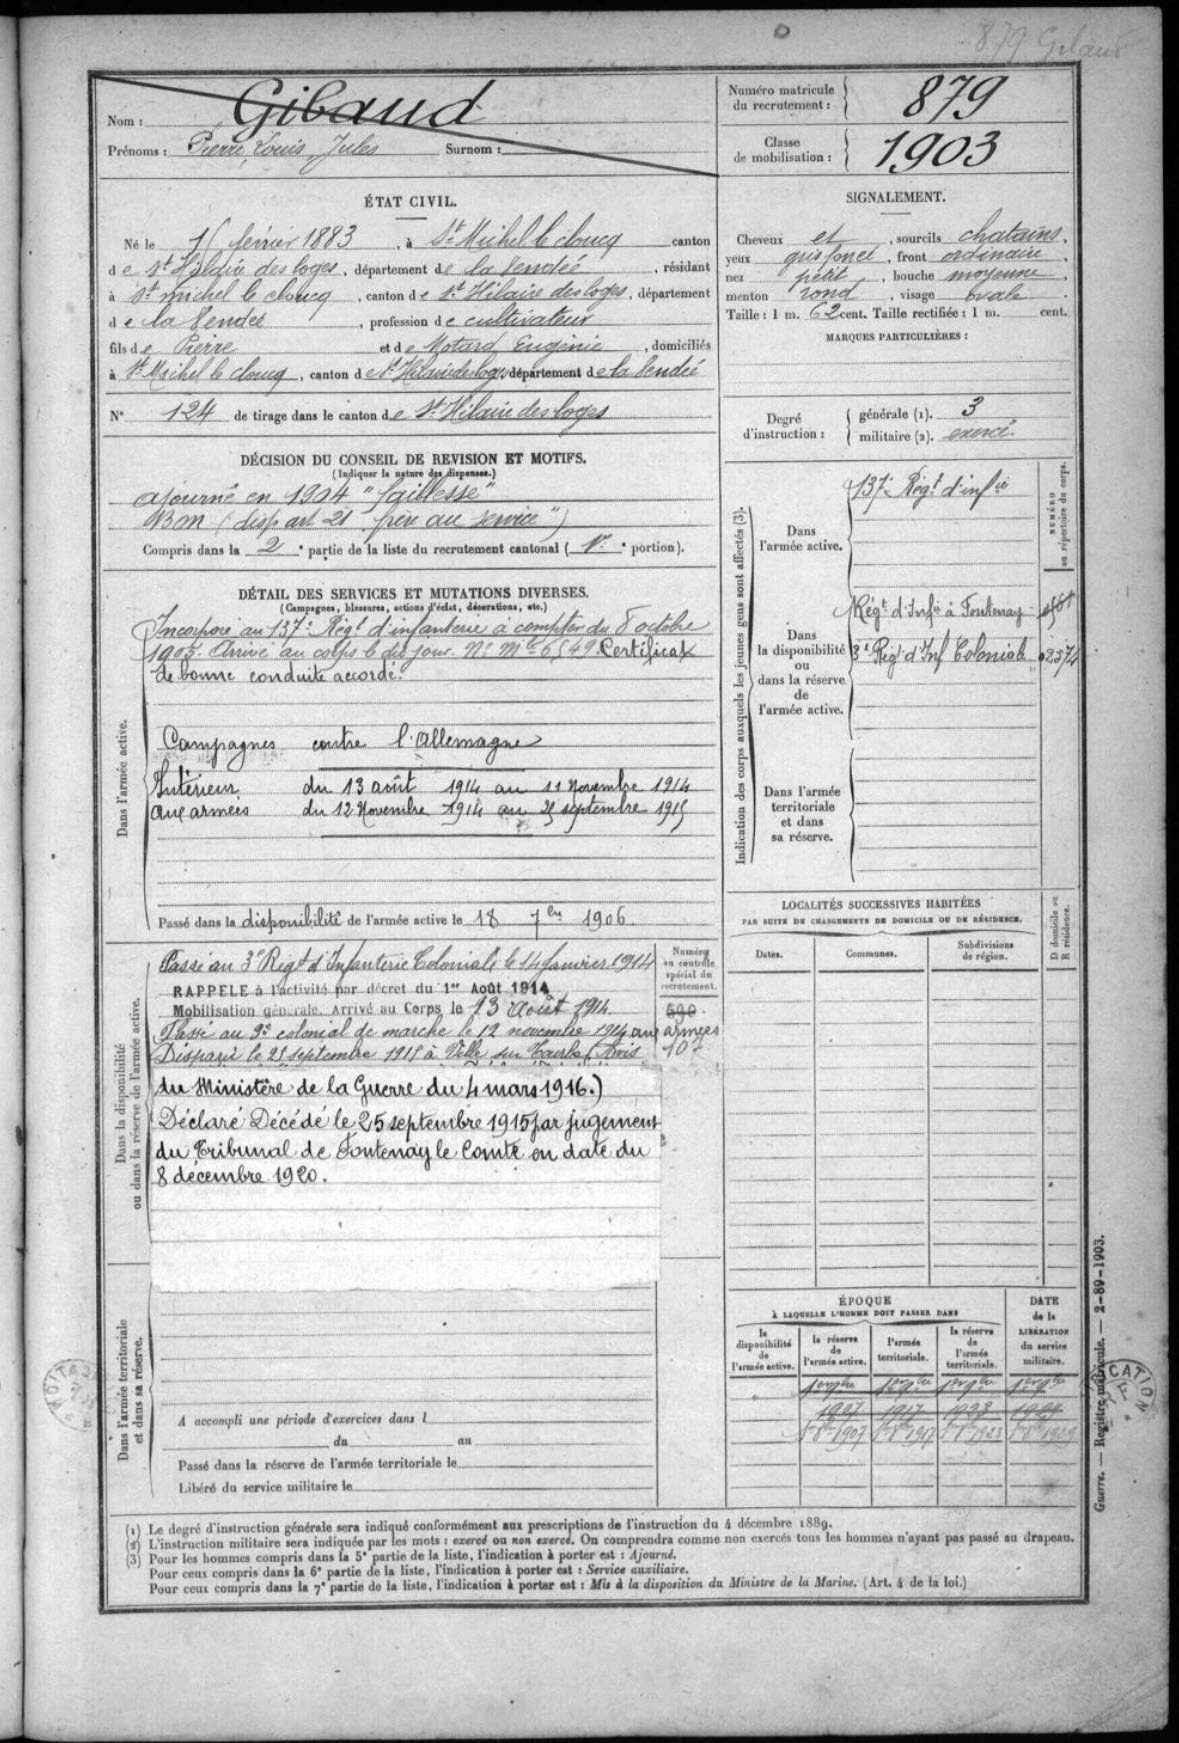 879 Gibaud
Nom : Gibaud
Prénoms : Pierre, Louis, Jules Surnom :
Numéro matricule du recrutement : 879
Classe de mobilisation : 1903
ÉTAT CIVIL.
Né le février 1883, à St Michel le cloucq canton
de St Hilaire des loges, département de la Vendée, résidant
à St michel le cloucq, canton de St Hilaire des loges, département
de la Vendée, profession de cultivateur
fils de Pierre et de Motard Eugénie, domiciliés
à St Michel le cloucq, canton de St Hilaire des loges, département de la Vendée
N° 124 de tirage dans le canton de St Hilaire des loges
SIGNALEMENT.
Cheveux et, sourcils chatains,
yeux gris foncé, front ordinaire,
nez petit, bouche moyenne,
menton rond, visage ovale.
Taille : 1 m. 62 cent. Taille rectifiée : 1 m. cent.
MARQUES PARTICULIÈRES :
Degré d'instruction : générale (1). 3
militaire (2). exercé.
DÉCISION DU CONSEIL DE REVISION ET MOTIFS.
(Indiquer la nature des dispenses.)
ajourné en 1904 "faiblesse"
Bon (disp art 21 "frère au service")
Compris dans la 2e partie de la liste du recrutement cantonal (1re portion).
DÉTAIL DES SERVICES ET MUTATIONS DIVERSES.
(Campagnes, blessures, actions d'éclat, décorations, etc.)
Dans l'armée active.
Incorporé au 137e Régt d'infanterie à compter du 8 octobre
1905. Arrivé au corps le dit jour. N° Mle 6549 Certificat
de bonne conduite accordé.
Campagnes contre l'Allemagne
Intérieur du 13 août 1914 au 11 Novembre 1914
aux armées du 12 Novembre 1914 au 25 septembre 1915
Passé dans la disponibilité de l'armée active le 18 7bre 1906.
Dans la disponibilité ou dans la réserve de l'armée active.
Passé au 3e Régt d'Infanterie Coloniale le 14 Janvier 1914
RAPPELÉ à l'activité par décret du 1er Août 1914
Mobilisation générale. Arrivé au Corps le 13 Août 1914.
Passé au 9e colonial de marche le 12 novembre 1914 aux armées
Disparu le 25 septembre 1915 à Ville sur Tourbe (Avis
du Ministère de la Guerre du 4 mars 1916.)
Déclaré Décédé le 25 septembre 1915 par jugement
du Tribunal de Fontenay le Comte en date du
8 décembre 1920.
Numéro au contrôle spécial du recrutement.
590.
107
Dans l'armée territoriale et dans sa réserve.
A accompli une période d'exercices dans l
du au
Passé dans la réserve de l'armée territoriale le
Libéré du service militaire le
Indication des corps auxquels les jeunes gens sont affectés (3).
NUMÉRO au répertoire du corps.
Dans l'armée active.
137e Régt d'infie
Dans la disponibilité ou dans la réserve de l'armée active.
Régt d'Infie à Fontenay
3e Régt d'Inf Coloniale 02374
Dans l'armée territoriale et dans sa réserve.
LOCALITÉS SUCCESSIVES HABITÉES
PAR SUITE DE CHANGEMENTS DE DOMICILE OU DE RÉSIDENCE.
Dates. Communes. Subdivisions de région. D domicile ou R résidence.
ÉPOQUE
À LAQUELLE L'HOMME DOIT PASSER DANS
DATE de la LIBÉRATION du service militaire.
la disponibilité de l'armée active. la réserve de l'armée active. l'armée territoriale. la réserve de l'armée territoriale.
1er 9bre 1er 9bre 1er 9bre 1er 9bre
1907 1917 1923 1929
1er 8bre 1907 1er 8bre 1917 1er 8bre 1923 1er 8bre 1929
(1) Le degré d'instruction générale sera indiqué conformément aux prescriptions de l'instruction du 4 décembre 1889.
(2) L'instruction militaire sera indiquée par les mots : exercé ou non exercé. On comprendra comme non exercés tous les hommes n'ayant pas passé au drapeau.
(3) Pour les hommes compris dans la 5e partie de la liste, l'indication à porter est : Ajourné.
Pour ceux compris dans la 6e partie de la liste, l'indication à porter est : Service auxiliaire.
Pour ceux compris dans la 7e partie de la liste, l'indication à porter est : Mis à la disposition du Ministre de la Marine. (Art. 4 de la loi.)
Guerre. — Registre matricule. — 2-89-1903.